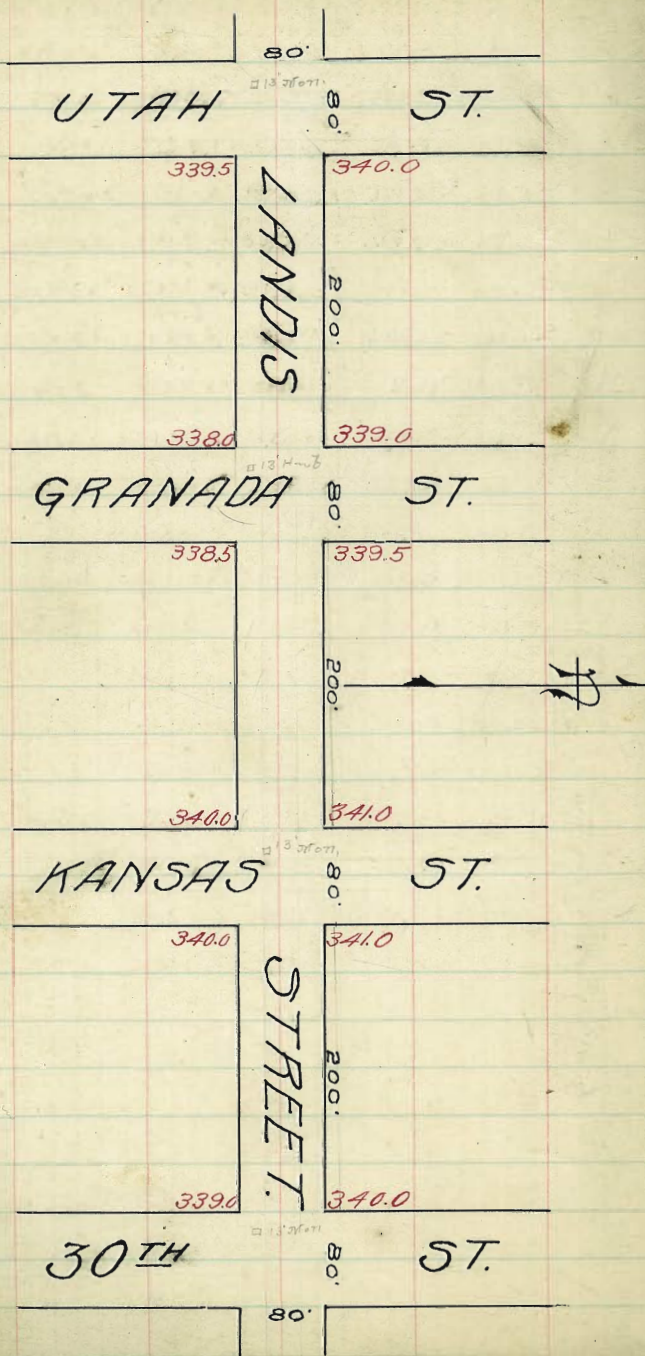 80'
□ 13' Mon.
UTAH 80' ST.
339.5 340.0
LANDIS
200'
338.0 339.0
□ 13'
GRANADA 80' ST.
338.5 339.5
200'
340.0 341.0
□ 13' Mon.
KANSAS 80' ST.
340.0 341.0
STREET.
200'
339.0 340.0
□ 13' Mon
30TH 80' ST.
80'